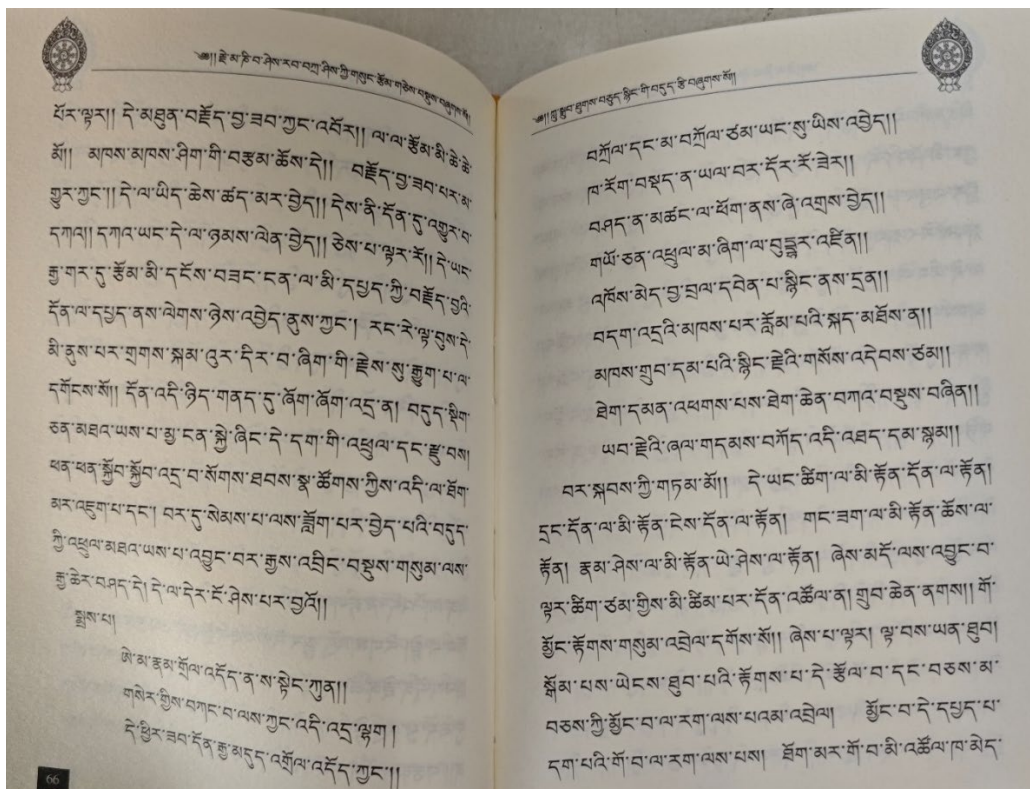 ༄༅།།རྗེ་མ་ཎི་བ་ཤེས་རབ་བཀྲ་ཤིས་ཀྱི་གསུང་རྩོམ་གཅེས་བསྡུས་བཞུགས་སོ།།
པོར་ལྟར།། དེ་མཐུན་བརྗོད་བྱ་ཟབ་ཀྱང་འབོར།། ལ་ལ་རྩོམ་མི་ཆེ་ཆེ་
མོ།། མཁས་མཁས་ཤིག་གི་བརྩམ་ཆོས་དེ།། བརྗོད་བྱ་ཟབ་པར་མ་
གྱུར་ཀྱང་།། དེ་ལ་ཡིད་ཆེས་ཚད་མར་བྱེད།། དེས་ནི་དོན་དུ་འགྱུར་བ་
དཀའ།། དཀའ་ཡང་དེ་ལ་ཉམས་ལེན་བྱེད།། ཅེས་པ་ལྟར་རོ།། དེ་ཡང་
རྒྱ་གར་དུ་རྩོམ་མི་དངོས་བཟང་ངན་ལ་མི་དཔྱད་ཀྱི་བརྗོད་བྱའི་
དོན་ལ་དཔྱད་ནས་ལེགས་ཉེས་འབྱེད་ནུས་ཀྱང་། རང་རེ་ལྟ་བུས་དེ་
མི་ནུས་པར་གྲགས་སྐམ་འུར་དིར་བ་ཞིག་གི་རྗེས་སུ་རྒྱུག་པ་ལ་
དགོངས་སོ།། དོན་འདི་ཉིད་གནད་དུ་ཞོག་ཞོག་འདྲ་ན། བདུད་སྡིག་
ཅན་མཐའ་ཡས་པ་མྱ་ངན་སྐྱེ་ཞིང་དེ་དག་གི་འཕྲུལ་དང་རྫུ་བས།
ཕན་ཕན་སྐྱོབ་སྐྱོབ་འདྲ་བ་སོགས་ཐབས་སྣ་ཚོགས་ཀྱིས་འདི་ལ་ཐོག་
མར་འཇུག་པ་དང་། བར་དུ་སེམས་པ་ལས་ཟློག་པར་བྱེད་པའི་བདུད་
ཀྱི་འཕྲུལ་མཐའ་ཡས་པ་འབྱུང་བར་རྒྱས་འབྲིང་བསྡུས་གསུམ་ལས་
རྒྱ་ཆེར་བཤད་དེ། དེ་ལ་དེར་ངོ་ཤེས་པར་བྱའོ།།
སྨྲས་པ།
ཨེ་མ་རྣམ་གྲོལ་འདོད་ན་ས་སྟེང་ཀུན།།
གསེར་གྱིས་བཀང་བ་ལས་ཀྱང་འདི་འདྲ་ལྷག །
དེ་ཕྱིར་ཟབ་དོན་རྒྱ་མདུད་འགྲོལ་འདོད་ཀྱང་།།
66
༄༅།།གྲུ་སྒྲུབ་ཐུགས་བཅུད་སྙིང་གི་བདུད་རྩི་བཞུགས་སོ།།
བཀྲོལ་དང་མ་བཀྲོལ་ཙམ་ཡང་སུ་ཡིས་འབྱེད།།
ཁ་རོག་བསྡད་ན་ཡལ་བར་དོར་རོ་ཟེར།།
བཤད་ན་མཚང་ལ་ཕོག་ནས་ཞེ་འགྲས་བྱེད།།
གཡོ་ཅན་འཕྲུལ་མ་ཞིག་ལ་བུདྡྷར་འཛིན།།
འཁོས་མེད་བྱ་བྲལ་དབེན་པ་སྙིང་ནས་དྲན།།
བདག་འདྲའི་མཁས་པར་རློམ་པའི་སྐད་མཐོས་ན།།
མཁས་གྲུབ་དམ་པའི་སྙིང་རྗེའི་གསོས་འདེབས་ཙམ།།
ཐེག་དམན་འཕགས་པས་ཐེག་ཆེན་བཀའ་བསྡུས་བཞིན།།
ཡབ་རྗེའི་ཞལ་གདམས་བཀོད་འདི་འཐད་དམ་སྙམ།།
བར་སྐབས་ཀྱི་གཏམ་མོ།། དེ་ཡང་ཚིག་ལ་མི་རྟོན་དོན་ལ་རྟོན།
དྲང་དོན་ལ་མི་རྟོན་ངེས་དོན་ལ་རྟོན། གང་ཟག་ལ་མི་རྟོན་ཆོས་ལ་
རྟོན། རྣམ་ཤེས་ལ་མི་རྟོན་ཡེ་ཤེས་ལ་རྟོན། ཞེས་མདོ་ལས་འབྱུང་བ་
ལྟར་ཚིག་ཙམ་གྱིས་མི་ཚིམ་པར་དོན་འཚོལ་ན། གྲུབ་ཆེན་ནགས།། གོ་
མྱོང་རྟོགས་གསུམ་འབྲེལ་དགོས་སོ།། ཞེས་པ་ལྟར། ལྟ་བས་ཡན་ཐུབ།
སྒོམ་པས་ཡེངས་ཐུབ་པའི་རྟོགས་པ་དེ་རྩོལ་བ་དང་བཅས་མ་
བཅས་ཀྱི་མྱོང་བ་ལ་རག་ལས་པའམ་འབྲེལ། མྱོང་བ་དེ་དཔྱད་པ་
དག་པའི་གོ་བ་ལ་རག་ལས་པས། ཐོག་མར་གོ་བ་མི་འཚོལ་ཁ་མེད་